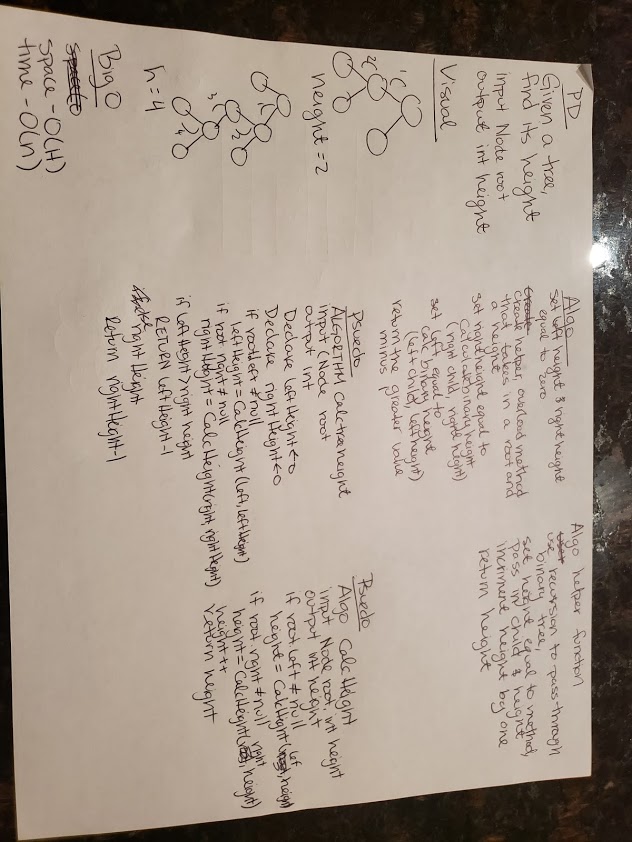 PD
Given a tree,
find its height
input Node root
output int height
Visual
1
2
height = 2
1
2
3
4
h = 4
Big O
space - O(H)
time - O(n)
Algo
set left height & right height
equal to zero
create helper, overload method
that takes in a root and
a height
set right height equal to
Calculate binary height
(right child, right height)
set left equal to
calc binary height
(left child, left height)
return the greater value
minus
Psuedo
ALGORTHM Calctreeheight
input (Node root
output int
Declare leftHeight ← 0
Declare rightHeight ← 0
if root left ≠ null
leftHeight = CalcHeight (left, leftHeight)
if root right ≠ null
rightHeight = CalcHeight(right, rightHeight)
if leftHeight > right height
RETURN leftHeight - 1
else
rightHeight
Return rightHeght - 1
Algo helper function
use recursion to pass through
binary tree,
set height equal to method,
pass in child & height
incriment height by one
return height
Psuedo
Algo CalcHeight
input Node root, int height
output int height
if root.left ≠ null
height = CalcHight(lef, height)
if root.right ≠ null
height = CalcHeight(right, height)
height++
return height